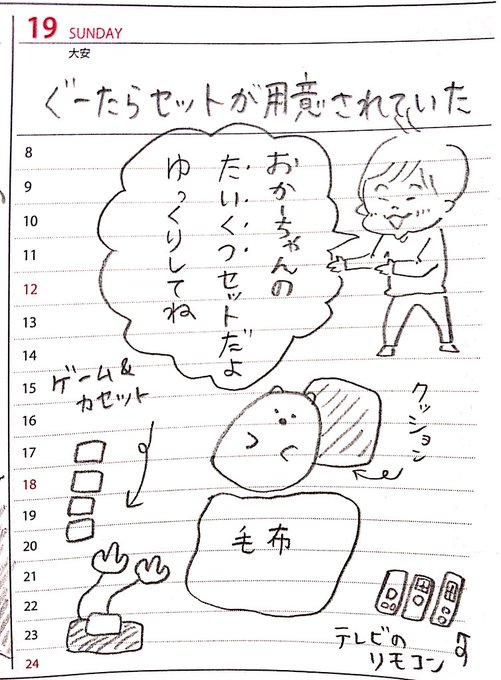 19 SUNDAY
大安
ぐーたらセットが用意されていた
おかーちゃんの
たいくつセットだよ
ゆっくりしてね
8
9
10
11
12
13
14
15
16
17
18
19
20
21
22
23
24
ゲーム&
カセット
クッション
毛布
テレビの
リモコン